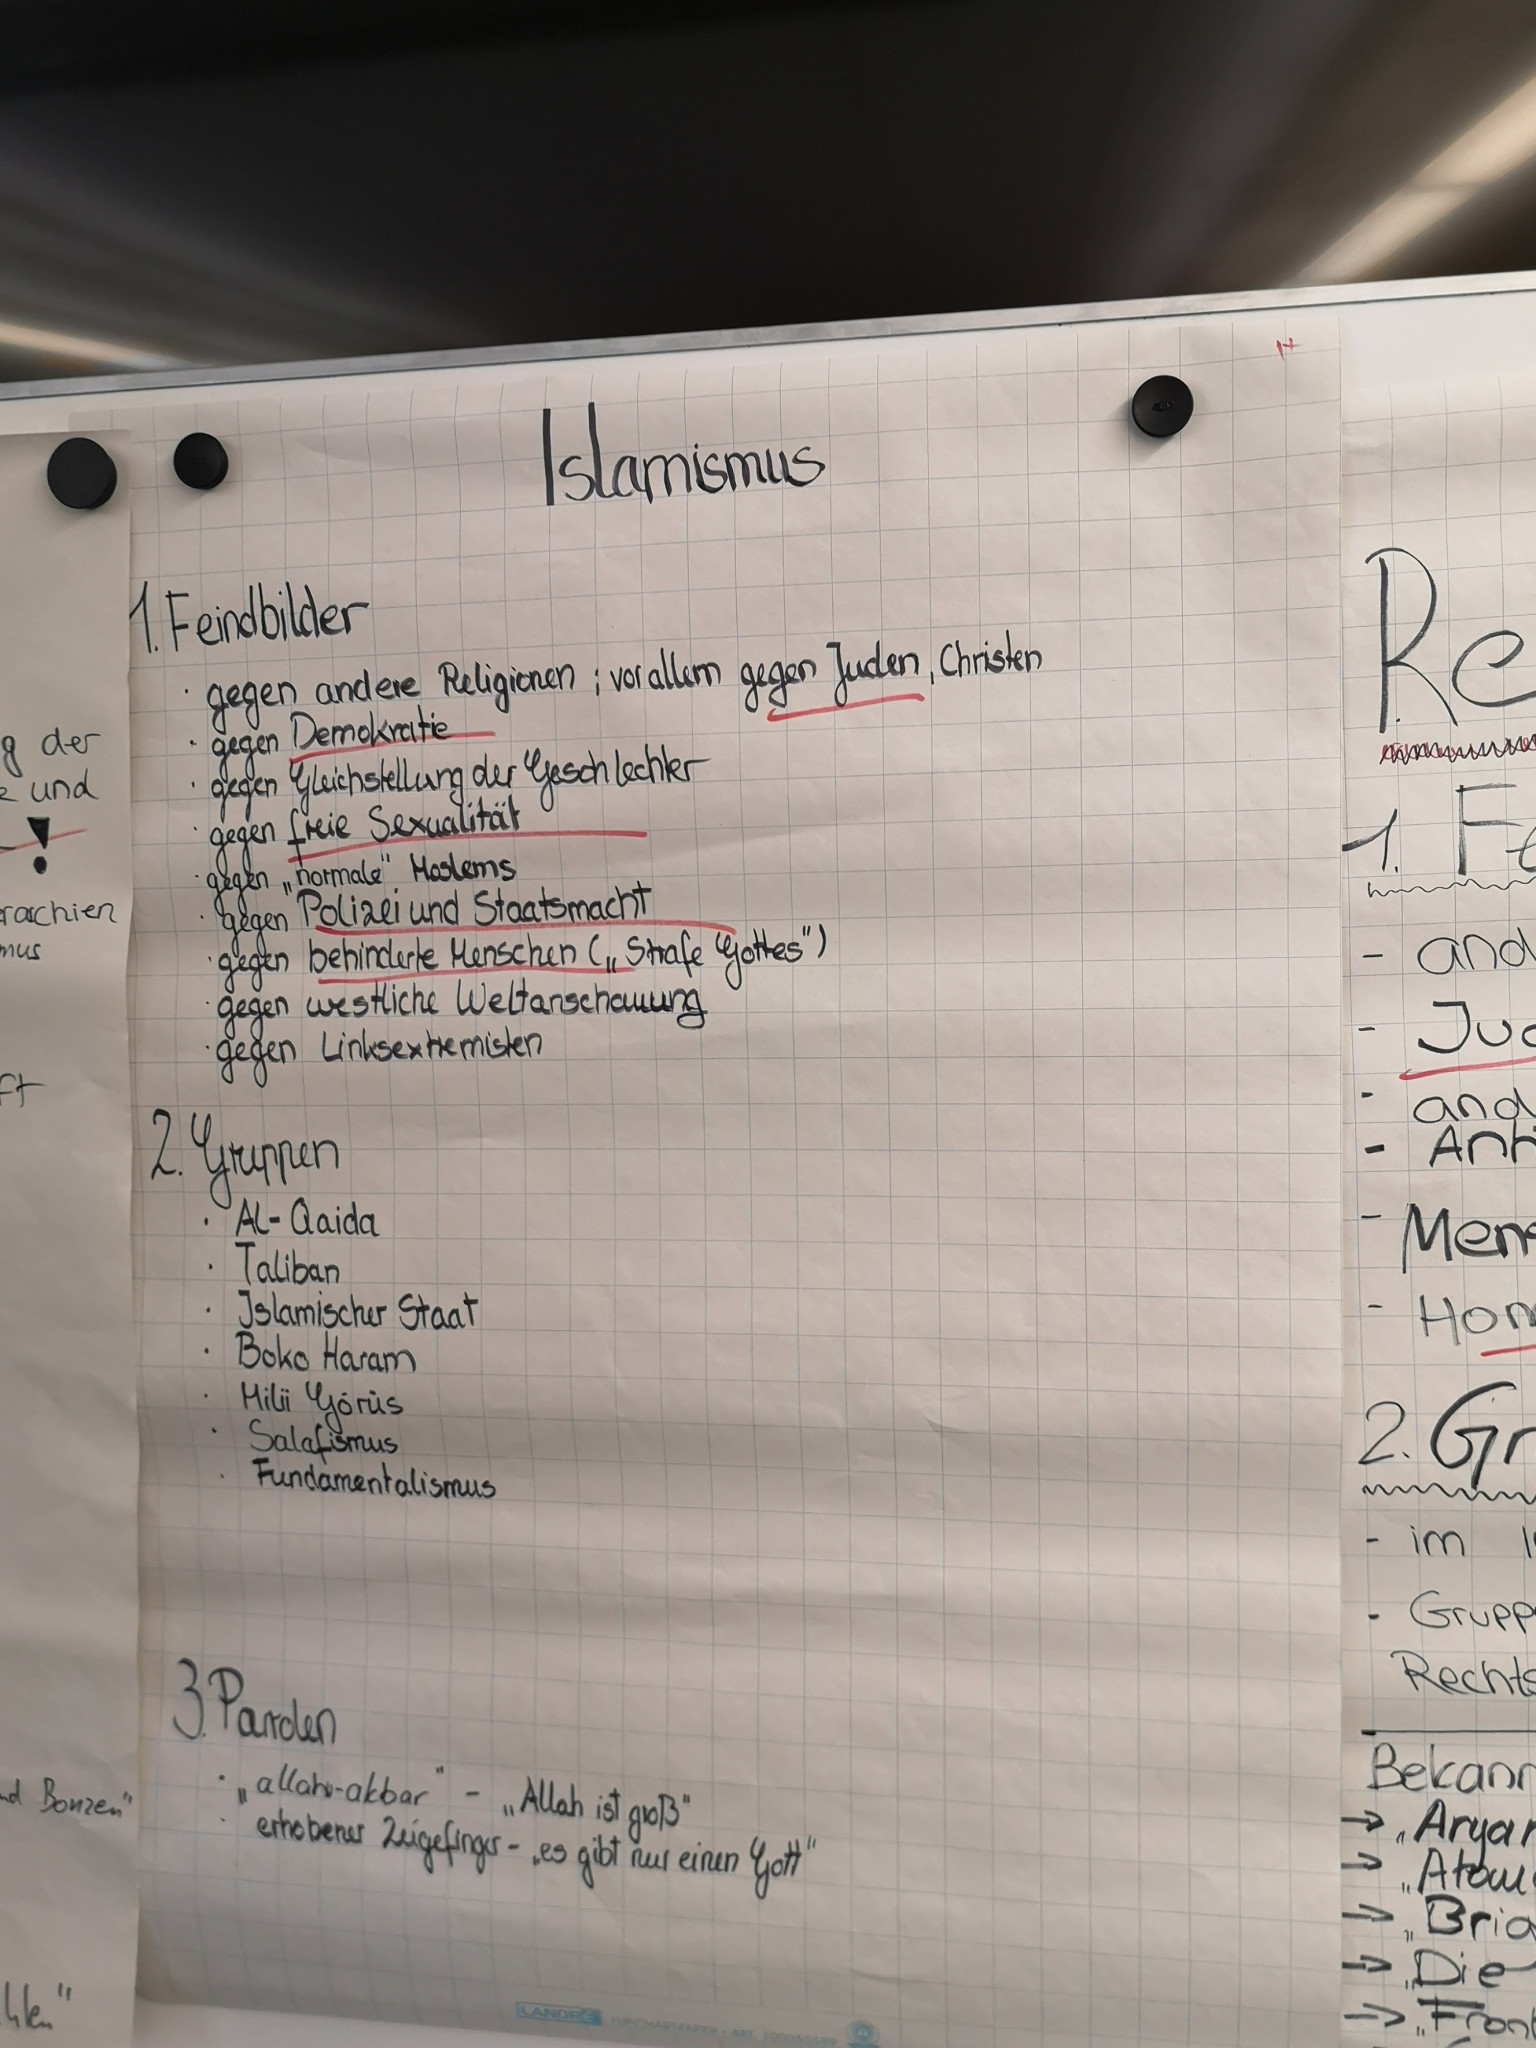 Islamismus
1. Feindbilder
· gegen andere Religionen ; vor allem gegen Juden, Christen
· gegen Demokratie
· gegen Gleichstellung der Geschlechter
· gegen freie Sexualität
· gegen „normale" Moslems
· gegen Polizei und Staatsmacht
· gegen behinderte Menschen („Strafe Gottes")
· gegen westliche Weltanschauung
· gegen Linksextremisten
2. Gruppen
· AL-Qaida
· Taliban
· Islamischer Staat
· Boko Haram
· Milii Görüs
· Salafismus
· Fundamentalismus
3. Parolen
· „allahu-akbar" - „Allah ist groß"
· erhobener Zeigefinger - „es gibt nur einen Gott"
LANDRÉ
g der
und
!
mus
Bonzen"
Re
1. Fe
- and
- Jud
- and
- Anh
- Mens
- Hom
2. Gr
- im
- Grupp
Rechts
Bekann
→ „Aryan
→ „Atom
→ „Brig
→ „Die
→ „Front